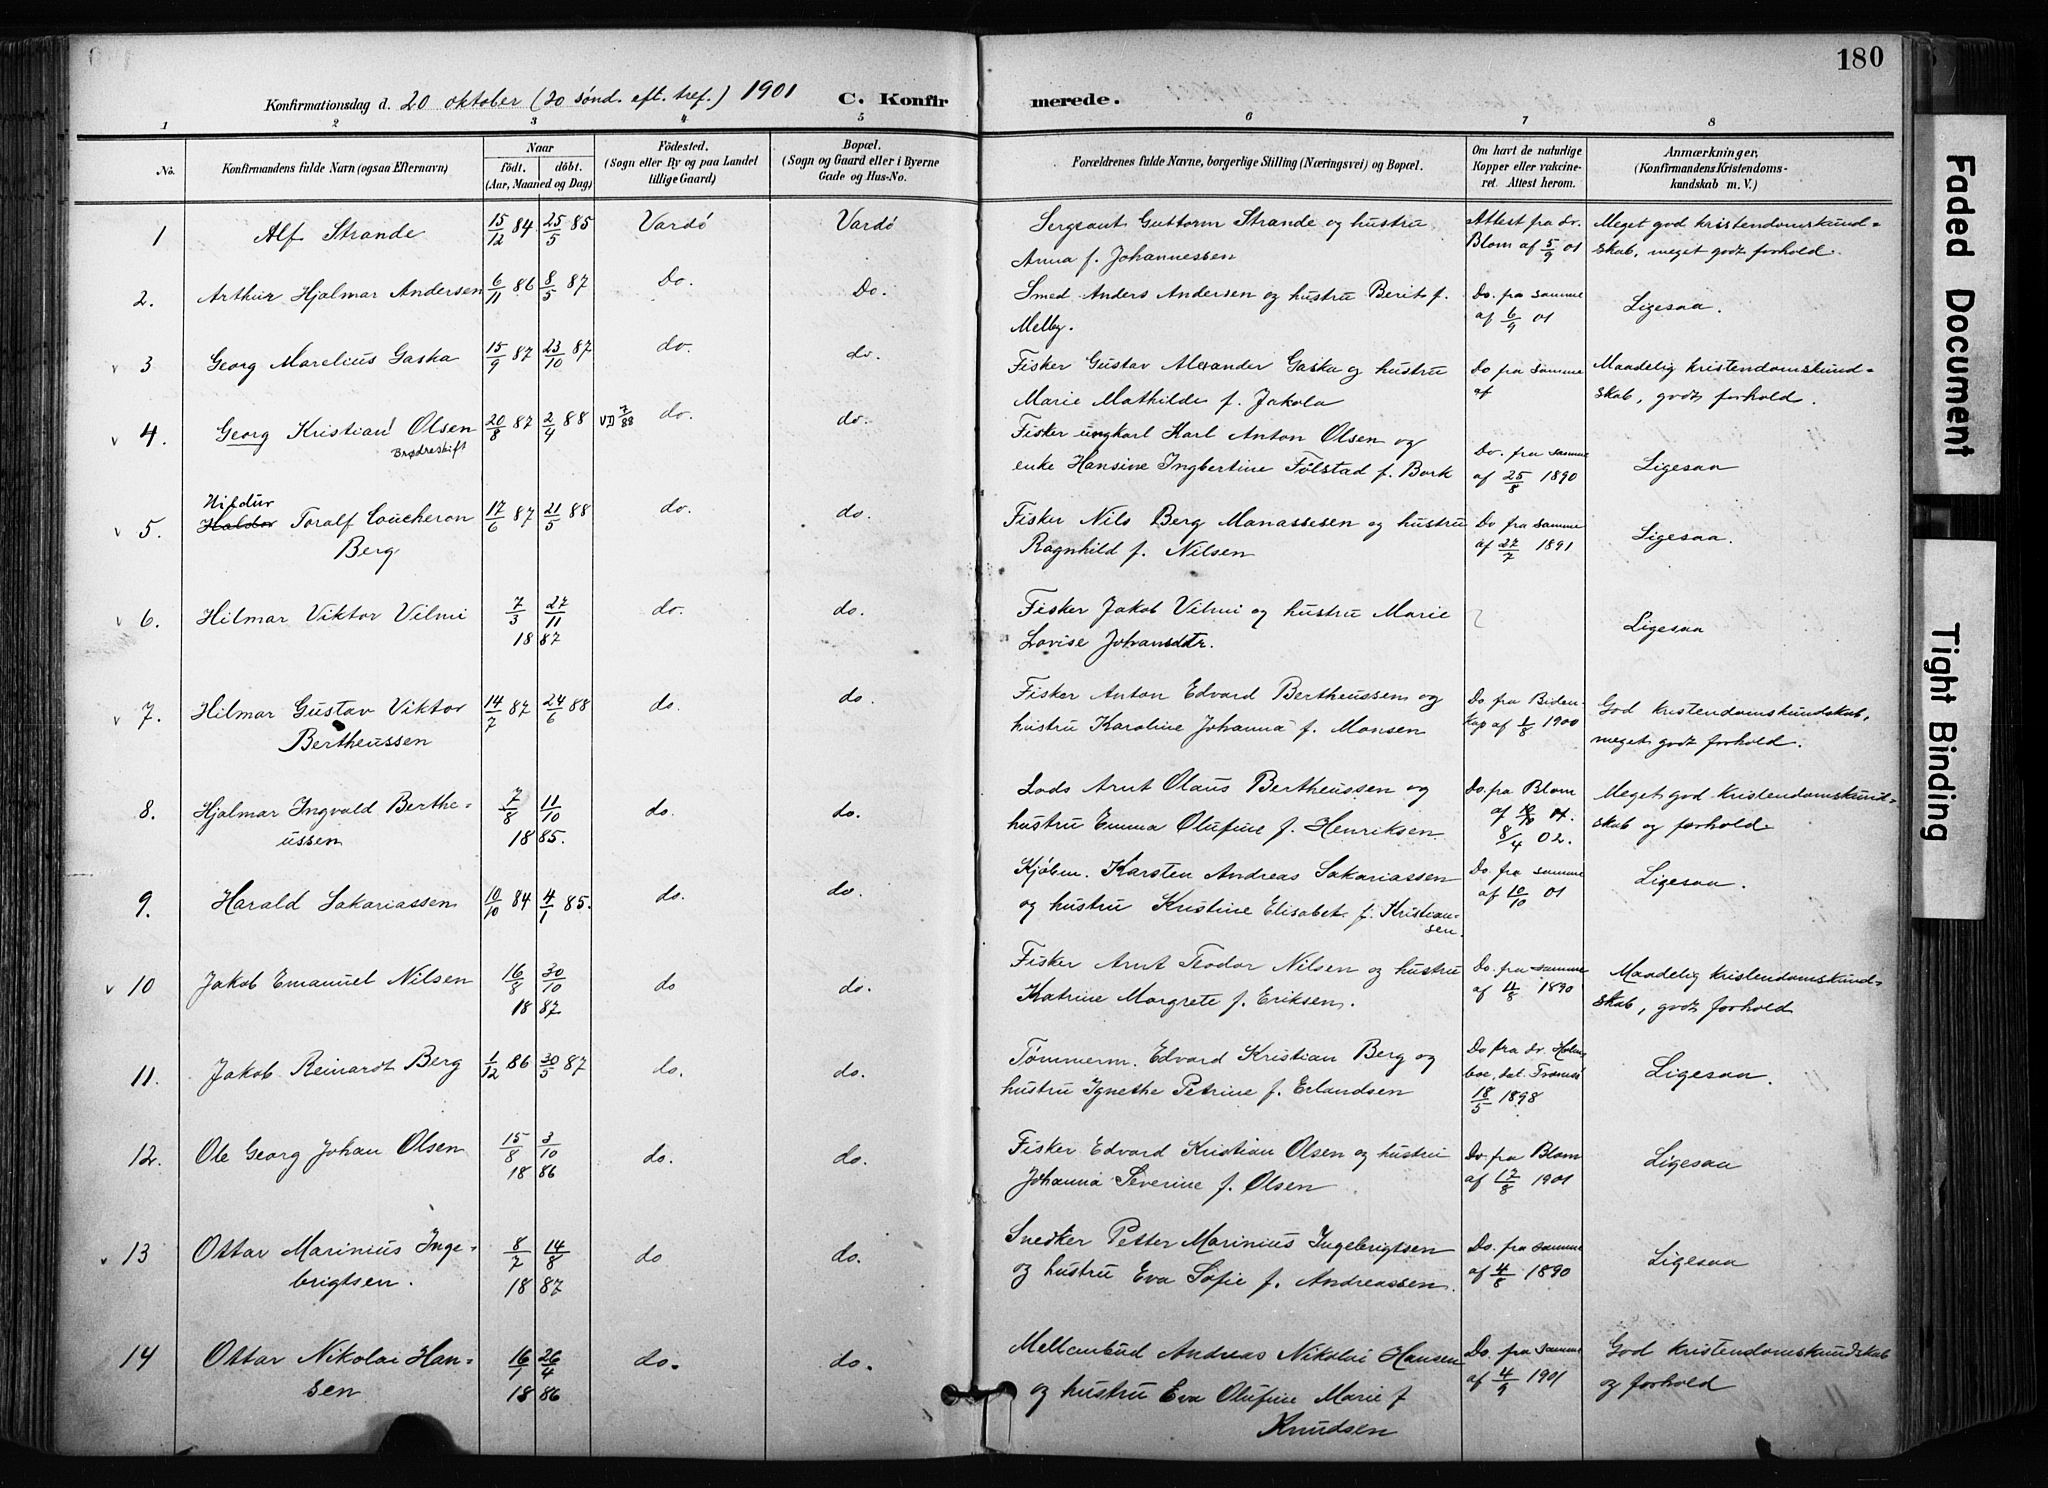 180
Konfirmationsdag d. 20 oktober (20 sönd. eft. tref.) 1901 C. Konfirmerede.
1 2 3 4 5 6 7 8
No. Konfirmandens fulde Navn (ogsaa Efternavn) Naar födt. döbt. (Aar, Maaned og Dag) Födested. (Sogn eller By og paa Landet tillige Gaard) Bopæl. (Sogn og Gaard eller i Byerne Gade og Hus-No. Forældrenes fulde Navne, borgerlige Stilling (Næringsvei) og Bopæl. Om havt de naturlige Kopper eller vakcineret. Attest herom. Anmærkninger, (Konfirmandens Kristendomskundskab m. V.)
1 Alf Strande 15/12 84 25/5 85 Vardö Vardö Sergeant Guttorm Strande og hustru Attest fra dr. Meget god kristendomskund=
Anna f. Johannessen Blom af 5/9 01 skab, meget godt forhold.
2. Arthur Hjalmar Andersen 6/11 86 8/5 87 Do. Do. Smed Anders Andersen og hustru Berit f. Do. fra samme Ligesaa.
Melby. af 6/9 01
v 3 Georg Marelius Gaska 15/9 87 23/10 87 do. do. Fisker Gustav Alexander Gaska og hustru Do fra samme Maadelig kristendomskund=
Marie Mathilde f. Jakola af skab, godt forhold.
v 4. Georg Kristian Olsen 20/8 87 2/4 88 VD 7/88 do. do. Fisker ungkarl Karl Anton Olsen og Do. fra samme Ligesaa
Brødreskift enke Hansine Ingbertine Følstad f. Bork af 25/8 1890
Hildur
v 5. Haldor Toralf Coucheron 17/6 87 21/5 88 do. do. Fisker Nils Berg Manassesen og hustru Do fra samme Ligesaa.
Berg Ragnhild f. Nilsen af 27/7 1891
v 6. Hilmar Viktor Vilmi 7/3 27/11 do. do. Fisker Jakob Vilmi og hustru Marie Ligesaa
1887 Lovise Johansdtr.
v 7. Hilmar Gustav Viktor 14/7 87 24/6 88 do. do. Fisker Anton Edvard Bertheussen og Do. fra Biden- God kristendomskundskab,
Bertheussen hustru Karoline Johanna f. Monsen kap af 1/8 1900 meget godt forhold.
8. Hjalmar Ingvald Berthe= 7/8 11/10 do. do. Lods Arnt Olaus Bertheussen og Do. fra Blom Meget god kristendomskund=
ussen 1885. hustru Emma Olufine f. Henriksen 8/4 02. skab og forhold
9. Harald Sakariassen 10/10 84 4/1 85. do. do. Kjøbm. Karsten Andreas Sakariassen Do. fra samme Ligesaa.
og hustru Kristine Elisabet f. Kristian= af 10/10 01
sen.
v 10 Jakob Emanuel Nilsen 16/8 30/10 do do. Fisker Arnt Teodor Nilsen og hustru Do. fra samme Maadelig kristendomskund=
1887 Katrine Margrete f. Eriksen. af 11/8 1890 skab, godt forhold
11. Jakob Reinardt Berg 1/12 86 30/5 87 do. do. Tømmerm. Edvard Kristian Berg og Do fra dr. Holm Ligesaa.
hustru Ignethe Petrine f. Erlandsen boe, dat. Tromsø
18/5 1898
12. Ole Georg Johan Olsen 15/8 3/10 do. do. Fisker Edvard Kristian Olsen og hustru Do. fra Blom Ligesaa
1886 Johanna Severine f. Olsen af 17/8 1901
v 13 Ottar Marinius Inge= 8/7 14/8 do do. Snedker Petter Marinius Ingebrigtsen Do. fra samme Ligesaa
brigtsen. 1887 og hustru Eva Sofie f. Andreassen. af 4/8 1890
14 Ottar Nikolai Han= 16/1 26/4 do. do. Andreas Nikolai Hansen Do. fra samme God kristendomskundskab
sen 1886 og hustru Eva Olufine Marie f. af 4/9 1901 og forhold
Knudsen
Faded Document
Tight Binding